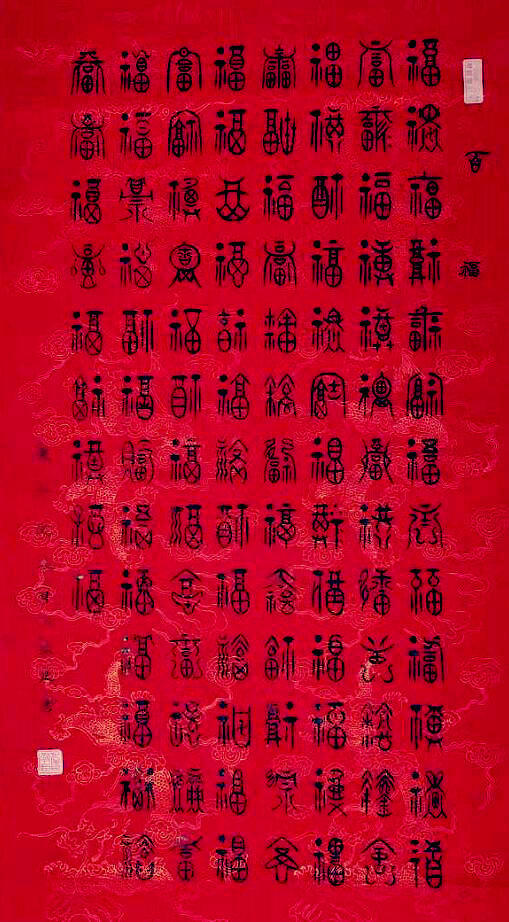 百福
福福福福福福福福福福福福福
福福福福福福福福福福福福福
福福福福福福福福福福福福福
福福福福福福福福福福福福福
福福福福福福福福福福福福福
福福福福福福福福福福福福福
福福福福福福福福福福福福福
福福福福福福福福福